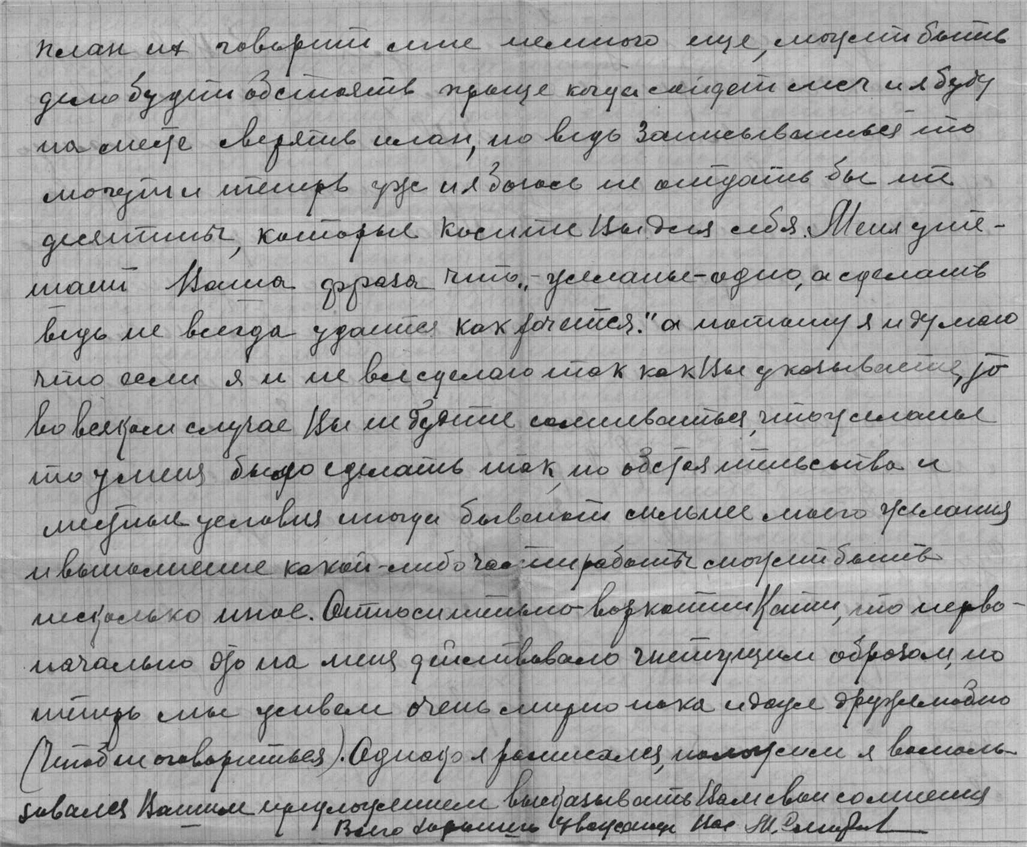 план их говорит мне немного еще, может быть
дело будет обстоять проще когда сойдет снег и я буду
на месте сверять план, но ведь записываться то
могут и теперь уже и я боюсь не отдать бы те
десятины, которые косите Вы для себя. Меня уте-
шает Ваша фраза что „желанье – одно, а сделать
ведь не всегда удается как хочется." а потому я и думаю
что если я и не все сделаю так как Вы указываете, то
во всяком случае Вы не будете сомневаться, что желанье
то у меня было сделать так, но обстоятельства и
местные условия иногда бывают сильнее моего желания
и выполнение какой-либо части работы может быть
несколько иное. Относительно воркотни Кати, то перво-
начально это на меня действовало гнетущим образом, но
теперь мы живем очень мирно пока и даже дружелюбно
(чтоб не оговориться). Однако я расписался, положим я восполь-
зовался Вашим предложением высказывать Вам свои сомнения
Всего хорошего уважающий Вас